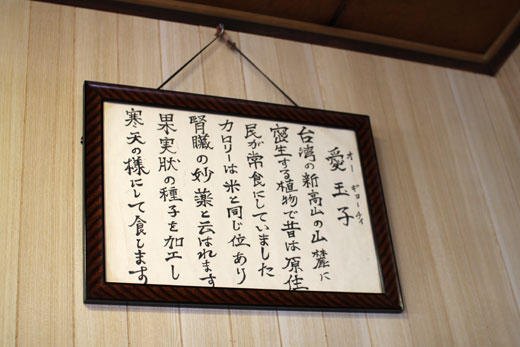 愛玉子
オーギョーチィ
台湾の新高山の山麓に
密生する植物で昔は原住
民が常食にしていました
カロリーは米と同じ位あり
腎臓の妙薬と云はれます
果実状の種子を加工し
寒天の様にして食します